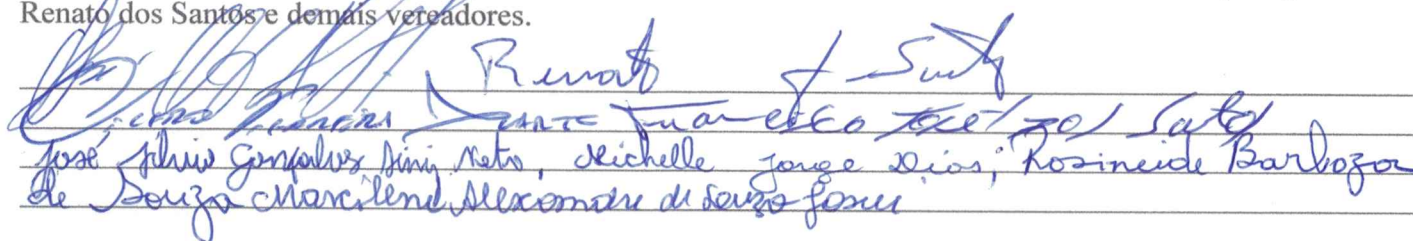 Renato dos Santos e demais vereadores.
Renato d Santos
Ferreira Duarte Francisco José dos Santos
José Silvio Gonçalves Diniz Neto, Michelle Jorge Dias, Rosineide Barboza
de Souza Marcilene Alexandre de Souza